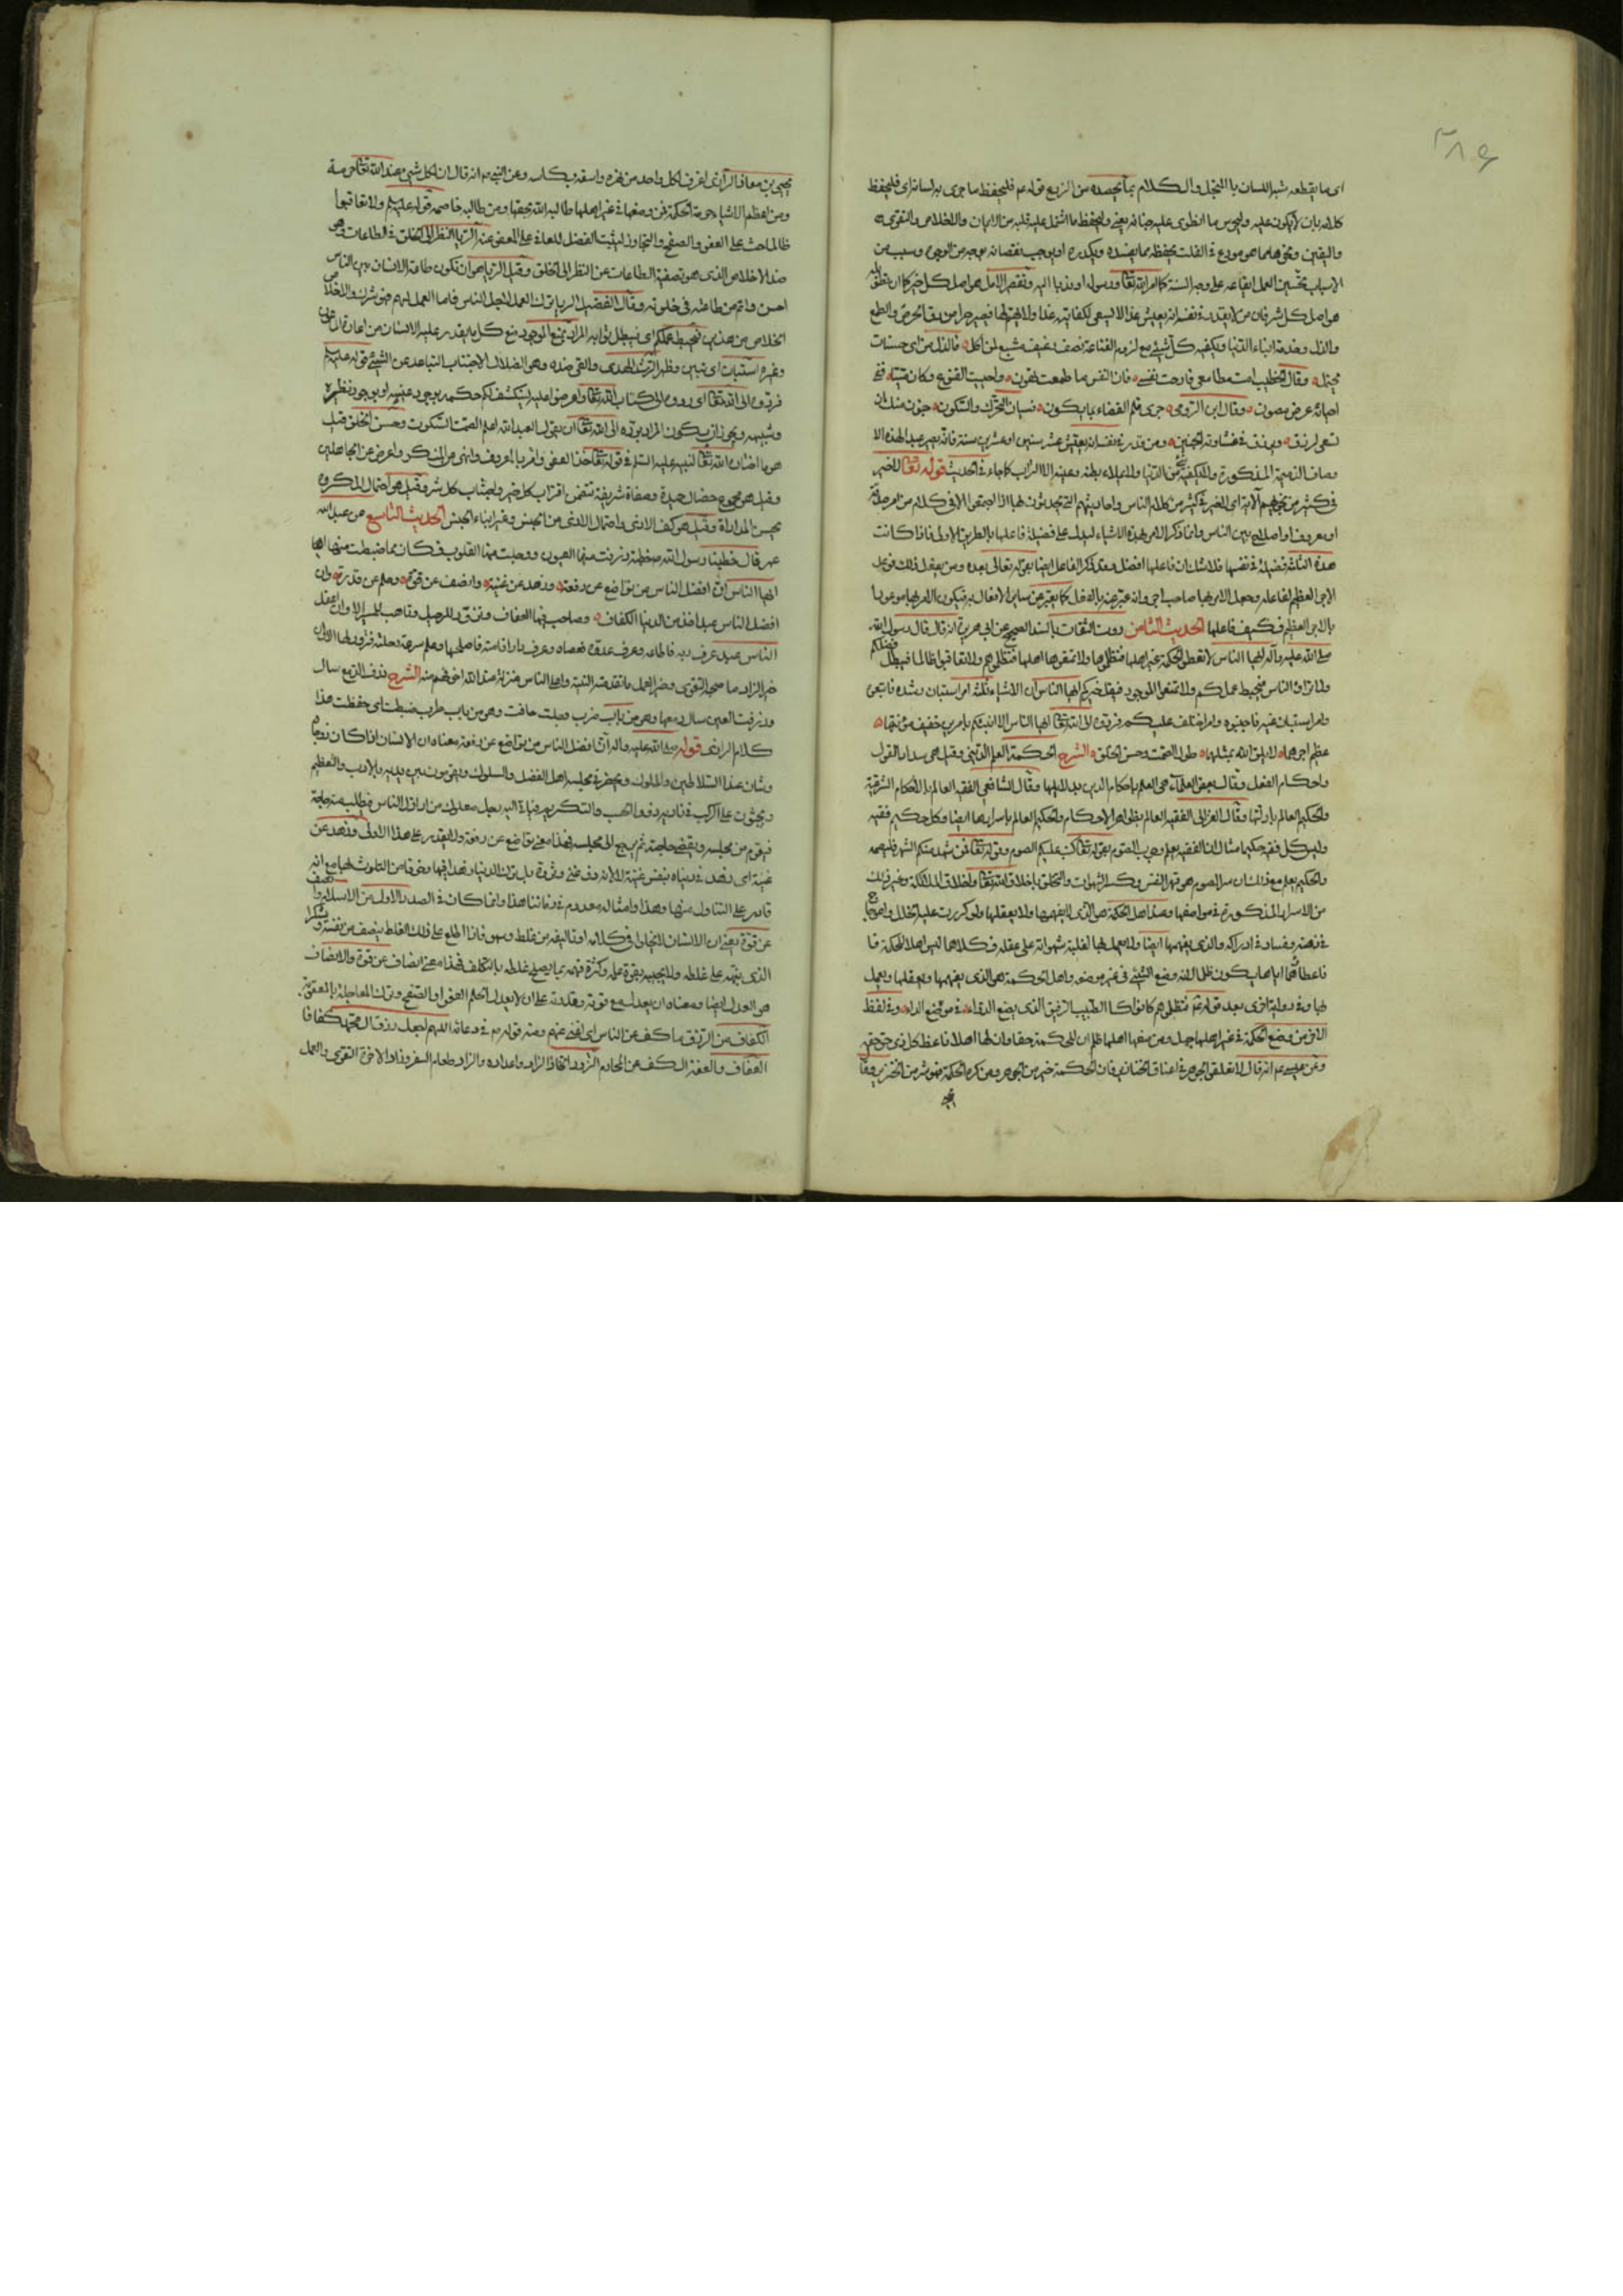 ٣٨٩
اى ما يقطعه شبر اللسان بالتخيل والكلام بما يحصده من الربع قوله عم فليحفظ ما جرى به لسانه اى فليحفظ
كلامه بان لا يكون عليه وليحرس ما انطوى عليه جنانه يعنى وليحفظ ما اشتمل عليه قلبه من الايمان والاخلاص والتقوى
واليقين ونحوها مما هو مودع فى القلب يحفظه مما يفسده ويكدره او يوجب نقصانه بوجه من الوجوه وسبب من
الاسباب تحسين العمل ايقاعه على وجه السنة كما امر الله تعالى ورسوله او ندبا اليه وتقصير الامل هو اصل كل خير كما ان تطويله
هو اصل كل شر فان من لا يقدر فى نفسه انه يعيش غدا لا يسعى لكفايته غدا ولا يهتم لها فيصير حرا من رق الحرص والطمع
والذل وخدمة ابناء الدنيا ويكفيه كل شئ مع لزوم القناعة نصف رغيف مشبع لمن اكل
وقال الخطيب امت مطامعى فارحت نفسى فان النفس ما طمعت تهون واحييت القنوع وكان ميتا ففى
احيائه عرض مصون وقال ابن الرومى جرى قلم القضاء بما يكون فسيان التحرك والسكون جنون منك ان
تسعى لرزق ويرزق فى غشاوته الجنين ومن قدر فى نفسه انه يعيش عشر سنين او عشرين سنة فانه يصير عبدا لهذه الا
وصاف الذميمة المذكورة ولا يكفيه شئ من الدنيا ولا يملاء بطنه وعينه الا التراب كما جاء فى الحديث قوله تعالى لا خير
فى كثير من نجويهم الآية اى لا خير فى كثير من كلام الناس واحاديثهم التى يحدثون بها اذا اجتمعوا الا فى كلام من امر بصدقة
او معروف او اصلاح بين الناس وانما ذكر الامر بهذه الاشياء ليدل على فضيلة فاعلها بالطريق الاولى فاذا كانت
هذه الثلثة فضيلة فى نفسها فلا شك ان فاعلها افضل وقد ذكر الفاعل ايضا بقوله تعالى بعده ومن يفعل ذلك فوعد
الاجر العظيم لفاعله وجعل الامر بها صاحب اجر وانه عبر عنه بالفعل كما يعبر عن ساير الافعال به فيكون الامر بها موعودا
بالاجر العظيم فكيف فاعلها الحديث الثامن روت الثقات بالسند الصحيح عن ابى هريرة انه قال قال رسول الله
صلى الله عليه وآله ايها الناس لا تعطوا الحكمة غير اهلها فتظلموها ولا تمنعوها اهلها فتظلموهم ولا تعاقبوا ظالما فيبطل فضلكم
ولا تراؤا الناس فيحبط عملكم ولا تمنعوا الموجود فيقل خيركم ايها الناس ان الاشياء ثلثة امر استبان رشده فاتبعوه
وامر استبان غيه فاجتنبوه وامر اختلف عليكم فردوه الى الله تعالى ايها الناس الا انبئكم بامرين خفيف مؤنتهما
عظيم اجرهما لم يلق الله بمثلهما طول الصمت وحسن الخلق الشرح الحكمة العلم الدينى وقيل هى سداد القول
واحكام الفعل وقال بعض العلماء هى العلم باحكام الدين بدلايلها وقال الشافعى الفقيه العالم بالاحكام الشرعية
والحكيم العالم بادلتها وقال الغزالى الفقيه العالم بظواهر الاحكام والحكيم العالم باسرارها ايضا وكل حكيم فقيه
وليس كل فقيه حكيما مثاله ان الفقيه يعلم وجوب الصوم بقوله تعالى كتب عليكم الصوم وقوله تعالى فمن شهد منكم الشهر فليصمه
والحكيم يعلم مع ذلك ان سر الصوم هو قهر النفس وكسر الشهوات والتخلق باخلاق الله تعالى واخلاق الملائكة وغير ذلك
من الاسرار المذكورة فى مواضعها وضد اهل الحكمة هو الذى لا يفهمها ولا يعقلها ولو كررت عليه لخلل واعوجاج
فى ذهنه وفساد فى ادراكه والذى يفهمها ايضا ولا يعمل بها لغلبة شهواته على عقله فكلاهما ليس اهلا للحكمة فا
فاعطاؤها اياهما يكون ظلما لانه وضع الشئ فى غير موضعه واهل الحكمة هو الذى يفهمها ويعقلها ويعمل
بها وفى رواية اخرى بعد قوله عم فتظلموهم كانوا كالطبيب الرفيق الذى يضع الدواء فى موضع الداء وفى لفظ
الاخر من وضع الحكمة فى غير اهلها جهل ومن منعها اهلها ظلم ان للحكمة حقا وان لها اهلا فاعط كل ذى حق حقه
وعن عيسى عم انه قال لا تعلقوا الجوهر فى اعناق الخنازير فان الحكمة خير من الجوهر ومن كره الحكمة فهو شر من الخنزير وقال
يحيى بن معاذ الرازى اغرف لكل واحد من نهره واسقه بكاسه وعن النبى عم انه قال ان لكل شئ عند الله تعالى حرمة
ومن اعظم الاشياء حرمة الحكمة فمن وضعها فى غير اهلها طالبه الله بحقها ومن طالبه خاصمه قوله عليه السلام ولا تعاقبوا
ظالما حث على العفو والصفح والتجاوز ليثبت الفضل للعافى على المعفو عنه الريا النظر الى الخلق فى الطاعات وهو
ضد الاخلاص الذى هو تصفية الطاعات عن النظر الى الخلق وقيل الريا هو ان تكون طاعة الانسان بين الناس
احسن واتم من طاعته فى خلوته وقال الفضيل الريا ترك العمل لاجل الناس فاما العمل لهم فهو شرك والاخلاص
الخلاص من هذين فيحبط عملكم اى فيبطل ثوابه المراد بمنع الموجود منع كل ما يقدر عليه الانسان من اعارة الماعون
وغيره استبان اى تبين وظهر الرشد الهدى والغى ضده وهو الضلال الاجتناب التباعد عن الشئ قوله عليه السلام
فردوه الى الله تعالى اى ردوه الى كتاب الله تعالى واعرضوا عليه لينكشف لكم حكمه بوجود عينه او بوجود نظيره
وشبيهه ويجوز ان يكون المراد برده الى الله تعالى ان يقول العبد الله اعلم الصمت السكوت وحسن الخلق قيل
هو ما اختاره الله تعالى لنبيه عليه السلام فى قوله تعالى خذ العفو وامر بالمعروف وانهى عن المنكر واعرض عن الجاهلين
وقيل هو مجموع خصال حميدة وصفات شريفة تتضمن اقتراب كل خير واجتناب كل شر وقيل هو احتمال المكروه
بحسن المداراة وقيل هو كف الاذى واحتمال الاذى من الجنس وغير ابناء الجنس الحديث التاسع عن عبد الله
عمر قال خطبنا رسول الله خطبة ذرفت منها العيون ووجلت منها القلوب فكان مما ضبطت منها ايها
ايها الناس ان افضل الناس من تواضع عن رفعة وزهد عن غنية وانصف عن قوة وحلم عن قدرة وان
افضل الناس عبد اخذ من الدنيا الكفاف وصاحب فيها العفاف وتزود للرحيل وتاهب للمسير الا وان اعقل
الناس عبد عرف ربه فاطاعه وعرف عدوه فعصاه وعرف دار اقامته فاصلحها وعلم سرعة رحلته فتزود لها الا وان
خير الزاد ما صحبه التقوى وخير العمل ما تقدمته النية واعلى الناس منزلة عند الله اخوفهم منه الشرح ذرف الدمع سال
وذرفت العين سال دمعها وهو من باب ضرب وجلت خافت وهو من باب طرب ضبطت اى حفظت هذا
كلام الرازى قوله صلى الله عليه وآله ان افضل الناس من تواضع عن رفعة معناه ان الانسان اذا كان ذو جاه
وشان عند السلاطين والملوك ويحضر فى مجلسه اهل الفضل والسلوك ويقومون بين يديه بالادب والتعظيم
ويجثون على الركب فى ناديه ذووا الحسب والتكريم فجاءة اليه رجل صعلوك من اراذل الناس فطلب منه حاجة
فيقوم من مجلسه ويقضى حاجته ثم يرجع الى مجلسه فهذا معنى تواضع عن رفعة ولا يقدر على هذا الا ولى وزهد عن
غنية اى زهد فى دنياه بنفس غنية لانه ذو غنى وثروة بل ترك الدنيا زهدا فيها وخوفا من التلوث بها مع انه
قادر على التناول منها وهذا وامثاله معدوم فى زماننا هذا وانما كان فى الصدر الاول من الاسلام وانصف
عن قوة يعنى ان الانسان لا يخلوا فى كلامه او تاليفه من غلط وسهو فاذا اطلع على ذلك الغلط ينصف من نفسه ويشكر
الذى ينبهه على غلطه ولا يجيبه بقوة علمه وكثرة فهمه بما يصلح غلطه بالتكلف فهذا معنى انصاف عن قوة والانصاف
هو العدل ايضا ومعناه ان يعدل مع قوته وقدرته على ان لا يعدل الحلم العفو او الصفح وترك المعاجلة بالعقوبة
الكفاف من الرزق ما كف عن الناس اى اغنى عنهم ومنه قوله عم فى دعائه اللهم اجعل رزق آل محمد كفافا
العفاف والعفة الكف عن المحارم التزود اتخاذ الزاد واعداده والزاد طعام السفر وزاد الاخرة التقوى والعمل